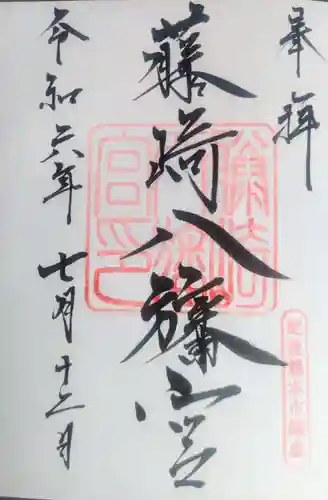 奉拝
藤崎八旛宮
令和六年七月十二日